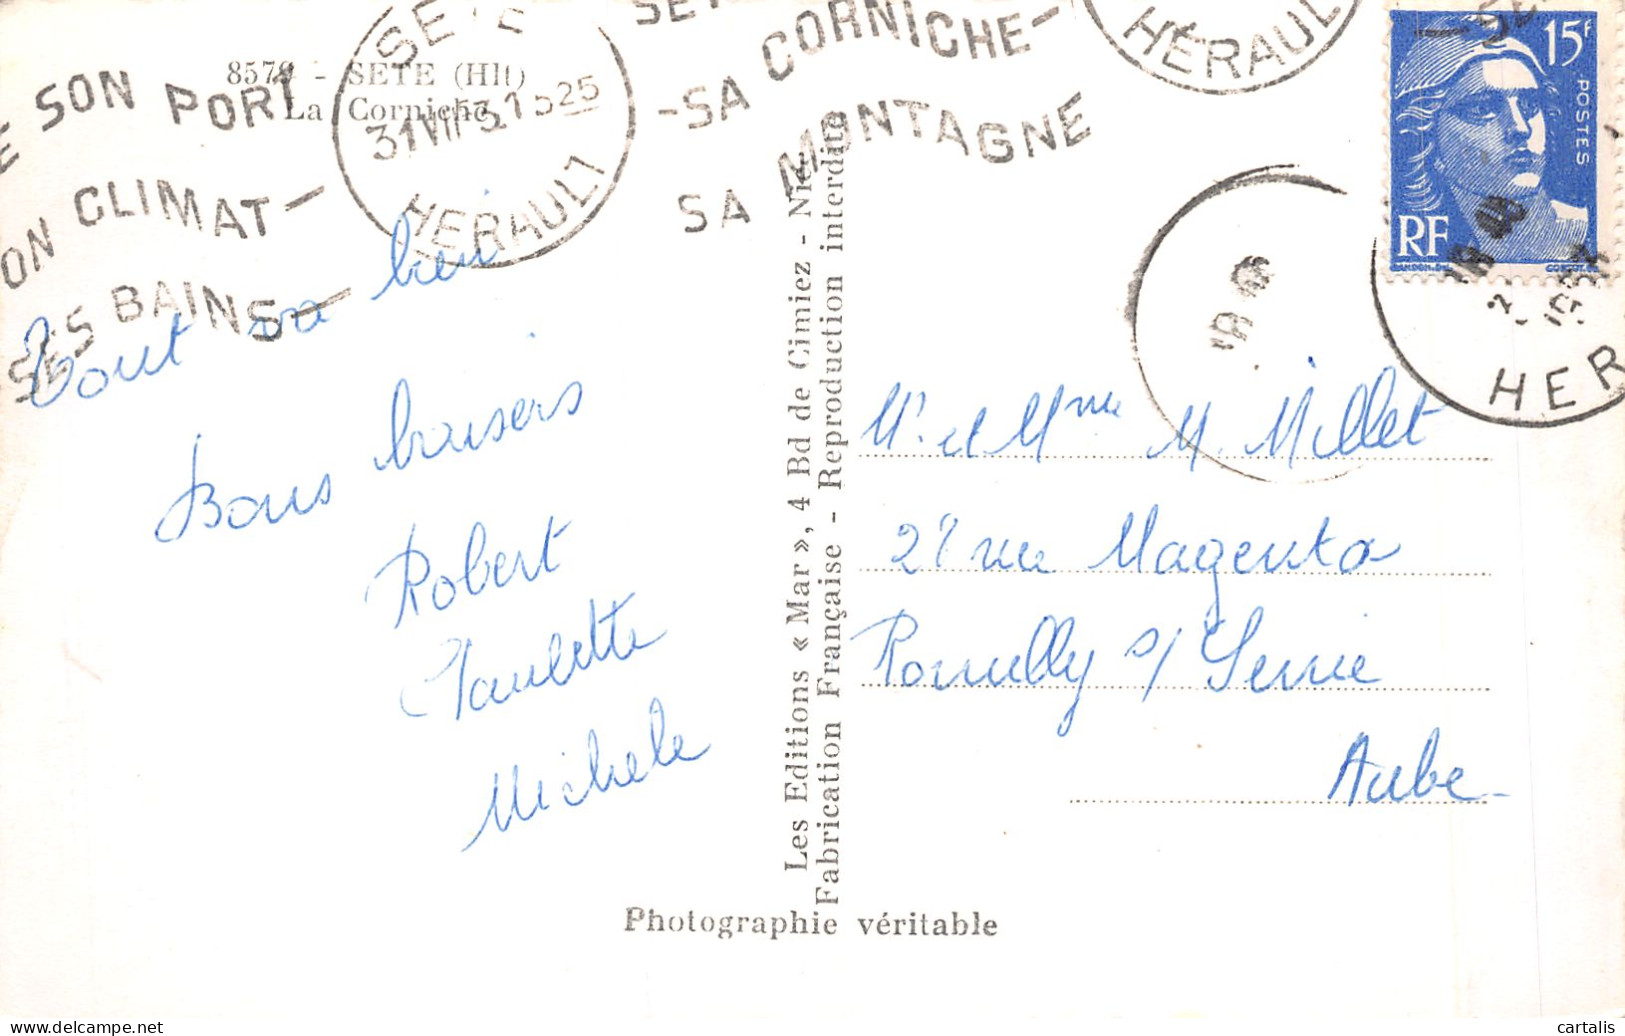 8579 - SETE (Hlt)
La Corniche
SON PORT
CLIMAT-
SES BAINS-
SETE
HERAULT
-SA CORNICHE-
SA MONTAGNE
HERAULT
15F
POSTES
RF
HER
Tout va bien
Bons baisers
Robert
Paulette
Michele
Les Editions « Mar », 4 Bd de Cimiez - Nice
Fabrication Française - Reproduction interdite
Mr et Mme M. Millet
rue Magenta
Romilly s/ Seine
Aube
Photographie véritable
cartalis